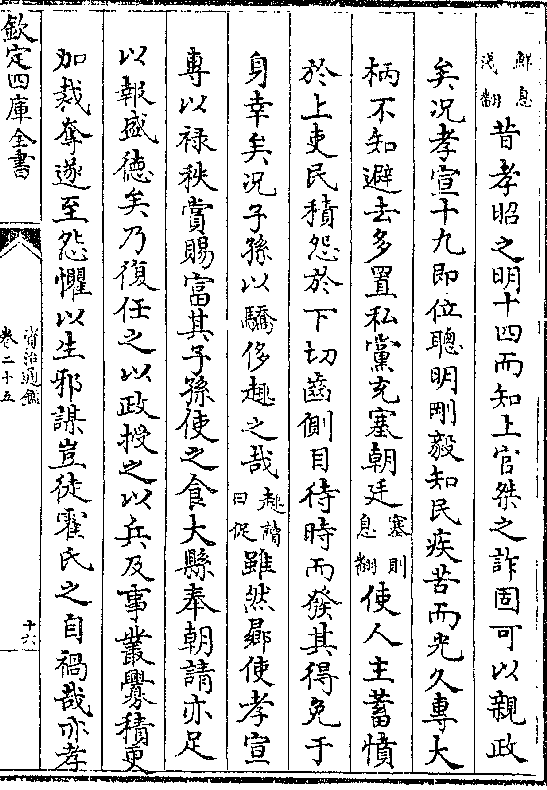 鮮息
淺翻
昔孝昭之明十四而知上官桀之詐固可以親政
矣况孝宣十九即位聰明剛毅知民疾苦而光久專大
柄不知避去多置私黨充塞朝廷
塞則
息翻
使人主蓄憤
於上吏民積怨於下切齒側目待時而發其得免于
身幸矣况子孫以驕侈趣之哉
趣讀
曰促
雖然鄉使孝宣
專以禄秩賞賜富其子孫使之食大縣奉朝請亦足
以報盛德矣乃復任之以政授之以兵及事叢釁積更
加裁奪遂至怨懼以生邪謀豈徒霍氏之自禍哉亦孝
欽定四庫全書
資治通鑑
卷二十五
十六